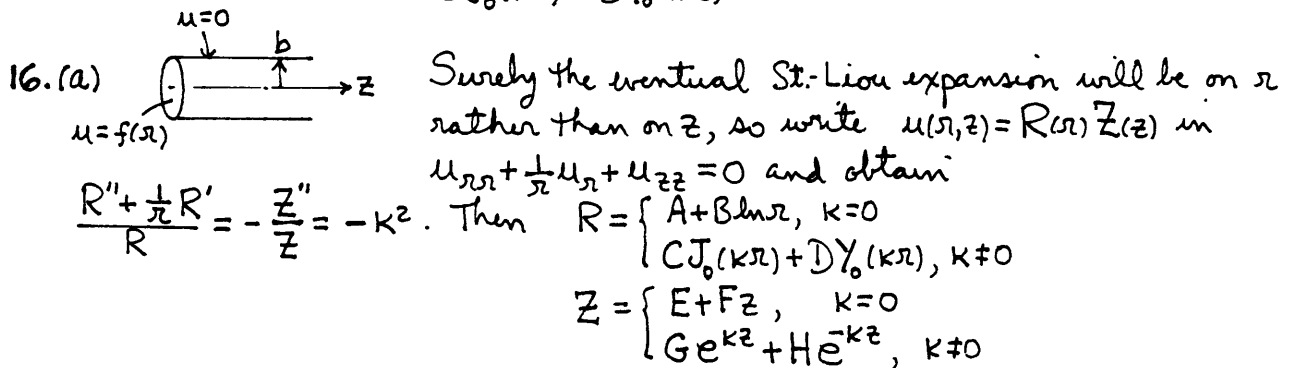 u=0
16.(a) b →z Surely the eventual St.-Liou expansion will be on r
u=f(r) rather than on z, so write u(r,z)=R(r)Z(z) in
u_rr+1/r u_r+u_zz=0 and obtain
(R''+1/r R')/R = -Z''/Z = -κ². Then R={ A+Blnr, κ=0
CJ₀(κr)+DY₀(κr), κ≠0
Z={ E+Fz, κ=0
Ge^{κz}+He^{-κz}, κ≠0